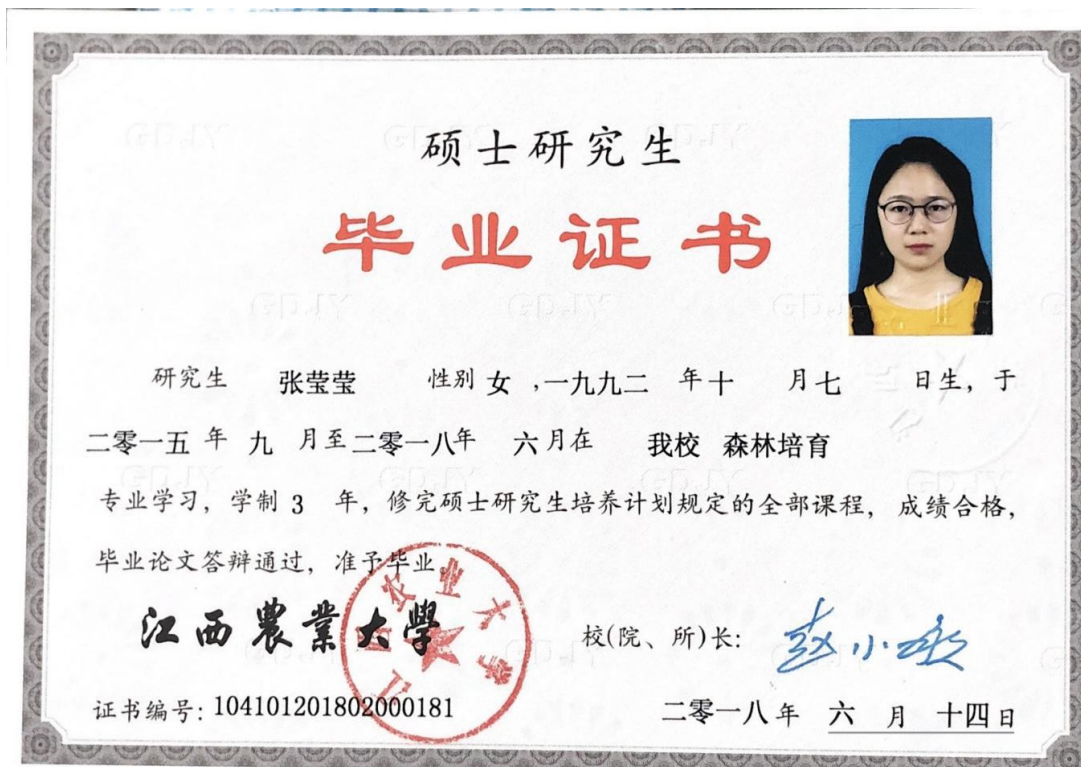 硕士研究生
毕业证书
研究生 张莹莹 性别 女 ,一九九二 年 十 月 七 日生，于
二零一五 年 九 月至 二零一八年 六 月在 我校 森林培育
专业学习，学制 3 年，修完硕士研究生培养计划规定的全部课程，成绩合格，
毕业论文答辩通过，准予毕业
江西農業大學
江西农业大学
校(院、所)长: 赵小敏
证书编号: 104101201802000181
二零一八 年 六 月 十四 日
GDJY